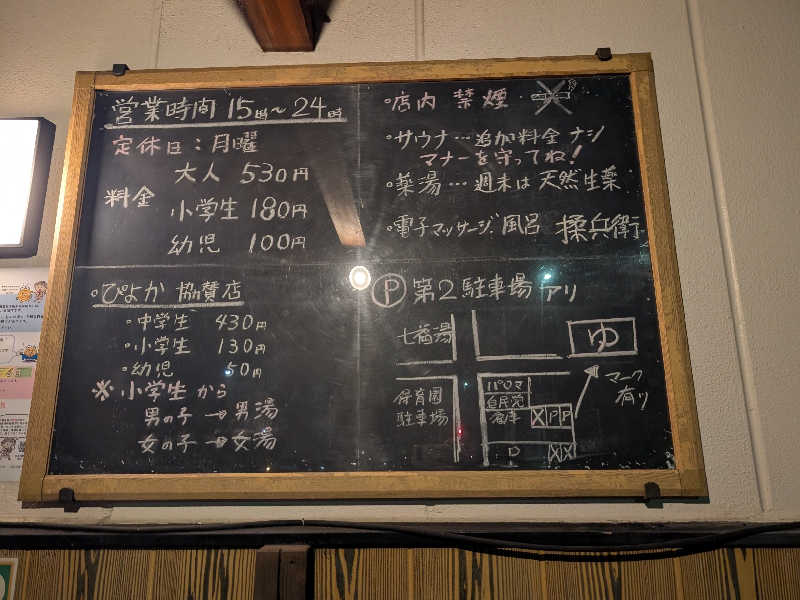 営業時間 15時～24時
定休日：月曜
料金
大人 530円
小学生 180円
幼児 100円
・ぴよか 協賛店
・中学生 430円
・小学生 130円
・幼児 50円
※小学生から
男の子→男湯
女の子→女湯
・店内 禁煙
・サウナ…追加料金ナシ
マナーを守ってね！
・薬湯…週末は天然生薬
・電子マッサージ風呂 揉兵衛
Ⓟ 第2駐車場 アリ
七福湯
ゆ
マーク
有リ
保育園
駐車場
パロマ
自民党
倉庫
P P